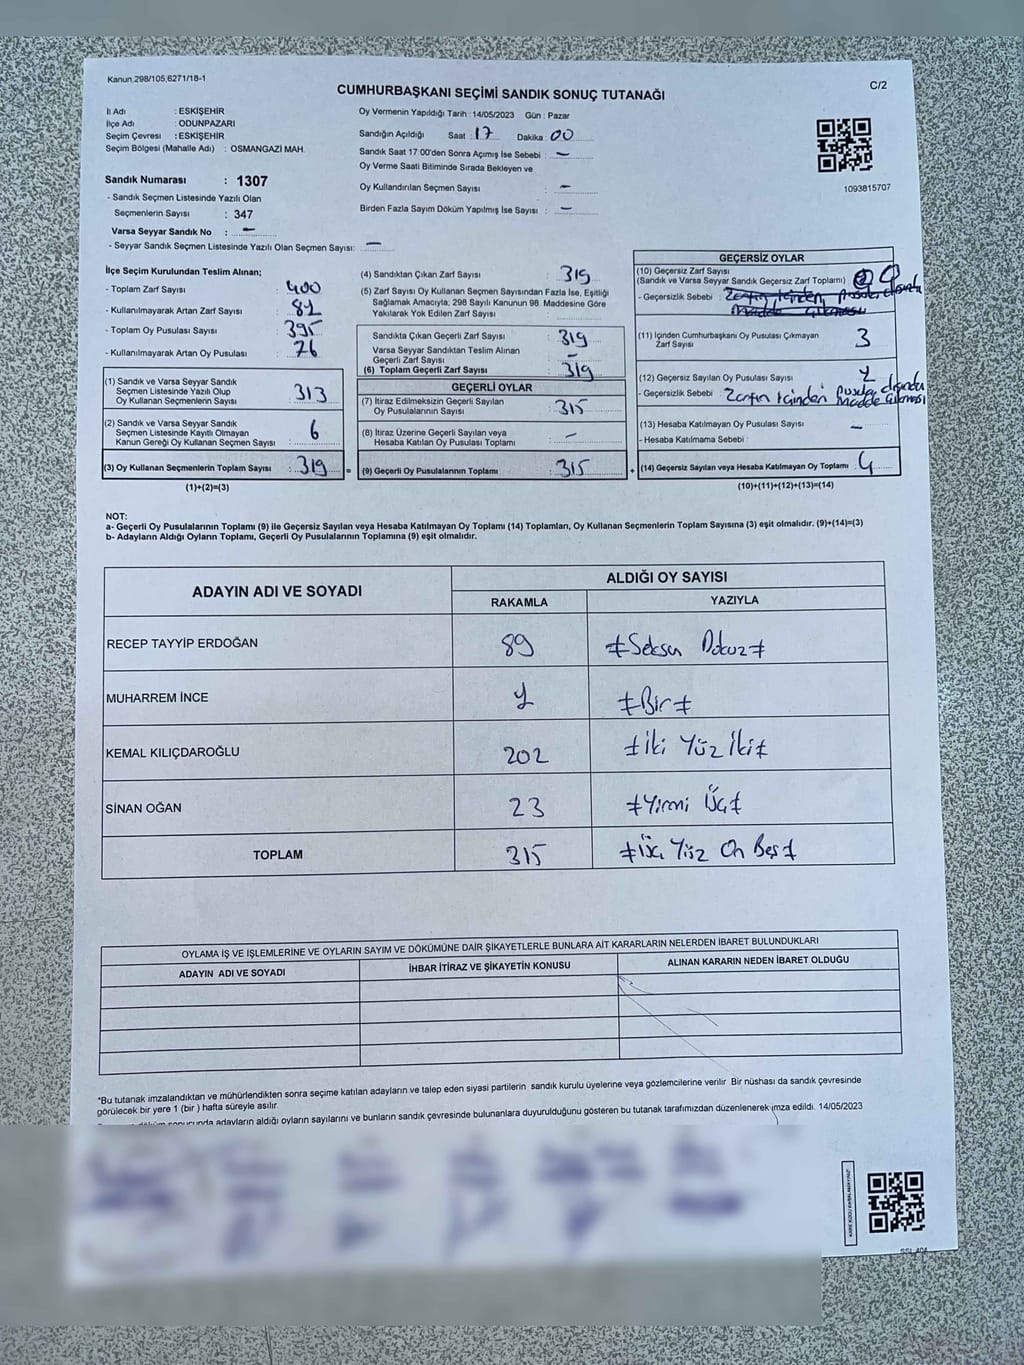 Kanun,298/105,6271/18-1
C/2
CUMHURBAŞKANI SEÇİMİ SANDIK SONUÇ TUTANAĞI
İl Adı : ESKİŞEHİR
İlçe Adı : ODUNPAZARI
Seçim Çevresi : ESKİŞEHİR
Seçim Bölgesi (Mahalle Adı) : OSMANGAZİ MAH.
Sandık Numarası : 1307
- Sandık Seçmen Listesinde Yazılı Olan
Seçmenlerin Sayısı : 347
Varsa Seyyar Sandık No : –
- Seyyar Sandık Seçmen Listesinde Yazılı Olan Seçmen Sayısı: –
Oy Vermenin Yapıldığı Tarih : 14/05/2023 Gün : Pazar
Sandığın Açıldığı Saat : 17 Dakika : 00
Sandık Saat 17:00'den Sonra Açımış İse Sebebi : –
Oy Verme Saati Bitiminde Sırada Bekleyen ve
Oy Kullandırılan Seçmen Sayısı : –
Birden Fazla Sayım Döküm Yapılmış İse Sayısı : –
1093815707
İlçe Seçim Kurulundan Teslim Alınan;
- Toplam Zarf Sayısı : 400
- Kullanılmayarak Artan Zarf Sayısı : 81
- Toplam Oy Pusulası Sayısı : 395
- Kullanılmayarak Artan Oy Pusulası : 76
(1) Sandık ve Varsa Seyyar Sandık
Seçmen Listesinde Yazılı Olup
Oy Kullanan Seçmenlerin Sayısı : 313
(2) Sandık ve Varsa Seyyar Sandık
Seçmen Listesinde Kayıtlı Olmayan
Kanun Gereği Oy Kullanan Seçmen Sayısı : 6
(3) Oy Kullanan Seçmenlerin Toplam Sayısı : 319 =
(1)+(2)=(3)
(4) Sandıktan Çıkan Zarf Sayısı : 319
(5) Zarf Sayısı Oy Kullanan Seçmen Sayısından Fazla İse, Eşitliği
Sağlamak Amacıyla, 298 Sayılı Kanunun 98. Maddesine Göre
Yakılarak Yok Edilen Zarf Sayısı :
Sandıkta Çıkan Geçerli Zarf Sayısı : 319
Varsa Seyyar Sandıktan Teslim Alınan
Geçerli Zarf Sayısı : –
(6) Toplam Geçerli Zarf Sayısı : 319
GEÇERLİ OYLAR
(7) İtiraz Edilmeksizin Geçerli Sayılan
Oy Pusulalarının Sayısı : 315
(8) İtiraz Üzerine Geçerli Sayılan veya
Hesaba Katılan Oy Pusulası Toplamı : –
(9) Geçerli Oy Pusulalarının Toplamı : 315 +
GEÇERSİZ OYLAR
(10) Geçersiz Zarf Sayısı
(Sandık ve Varsa Seyyar Sandık Geçersiz Zarf Toplamı) : 0
- Geçersizlik Sebebi : Zarfın İçinden Pusula dışında
Madde Çıkması
(11) İçinden Cumhurbaşkanı Oy Pusulası Çıkmayan
Zarf Sayısı : 3
(12) Geçersiz Sayılan Oy Pusulası Sayısı : 1
- Geçersizlik Sebebi : Zarfın İçinden Pusula dışında
Madde Çıkması
(13) Hesaba Katılmayan Oy Pusulası Sayısı : –
- Hesaba Katılmama Sebebi :
(14) Geçersiz Sayılan veya Hesaba Katılmayan Oy Toplamı : 4
(10)+(11)+(12)+(13)=(14)
NOT:
a- Geçerli Oy Pusulalarının Toplamı (9) ile Geçersiz Sayılan veya Hesaba Katılmayan Oy Toplamı (14) Toplamları, Oy Kullanan Seçmenlerin Toplam Sayısına (3) eşit olmalıdır. (9)+(14)=(3)
b- Adayların Aldığı Oyların Toplamı, Geçerli Oy Pusulalarının Toplamına (9) eşit olmalıdır.
ADAYIN ADI VE SOYADI
ALDIĞI OY SAYISI
RAKAMLA YAZIYLA
RECEP TAYYİP ERDOĞAN 89 ≠Seksen Dokuz≠
MUHARREM İNCE 1 ≠Bir≠
KEMAL KILIÇDAROĞLU 202 ≠İki Yüz İki≠
SİNAN OĞAN 23 ≠Yirmi Üç≠
TOPLAM 315 ≠Üç Yüz On Beş≠
OYLAMA İŞ VE İŞLEMLERİNE VE OYLARIN SAYIM VE DÖKÜMÜNE DAİR ŞİKAYETLERLE BUNLARA AİT KARARLARIN NELERDEN İBARET BULUNDUKLARI
ADAYIN ADI VE SOYADI İHBAR İTİRAZ VE ŞİKAYETİN KONUSU ALINAN KARARIN NEDEN İBARET OLDUĞU
*Bu tutanak imzalandıktan ve mühürlendikten sonra seçime katılan adayların ve talep eden siyasi partilerin sandık kurulu üyelerine veya gözlemcilerine verilir Bir nüshası da sandık çevresinde
görülecek bir yere 1 (bir ) hafta süreyle asılır.
sonucunda adayların aldığı oyların sayılarını ve bunların sandık çevresinde bulunanlara duyurulduğunu gösteren bu tutanak tarafımızdan düzenlenerek imza edildi. 14/05/2023